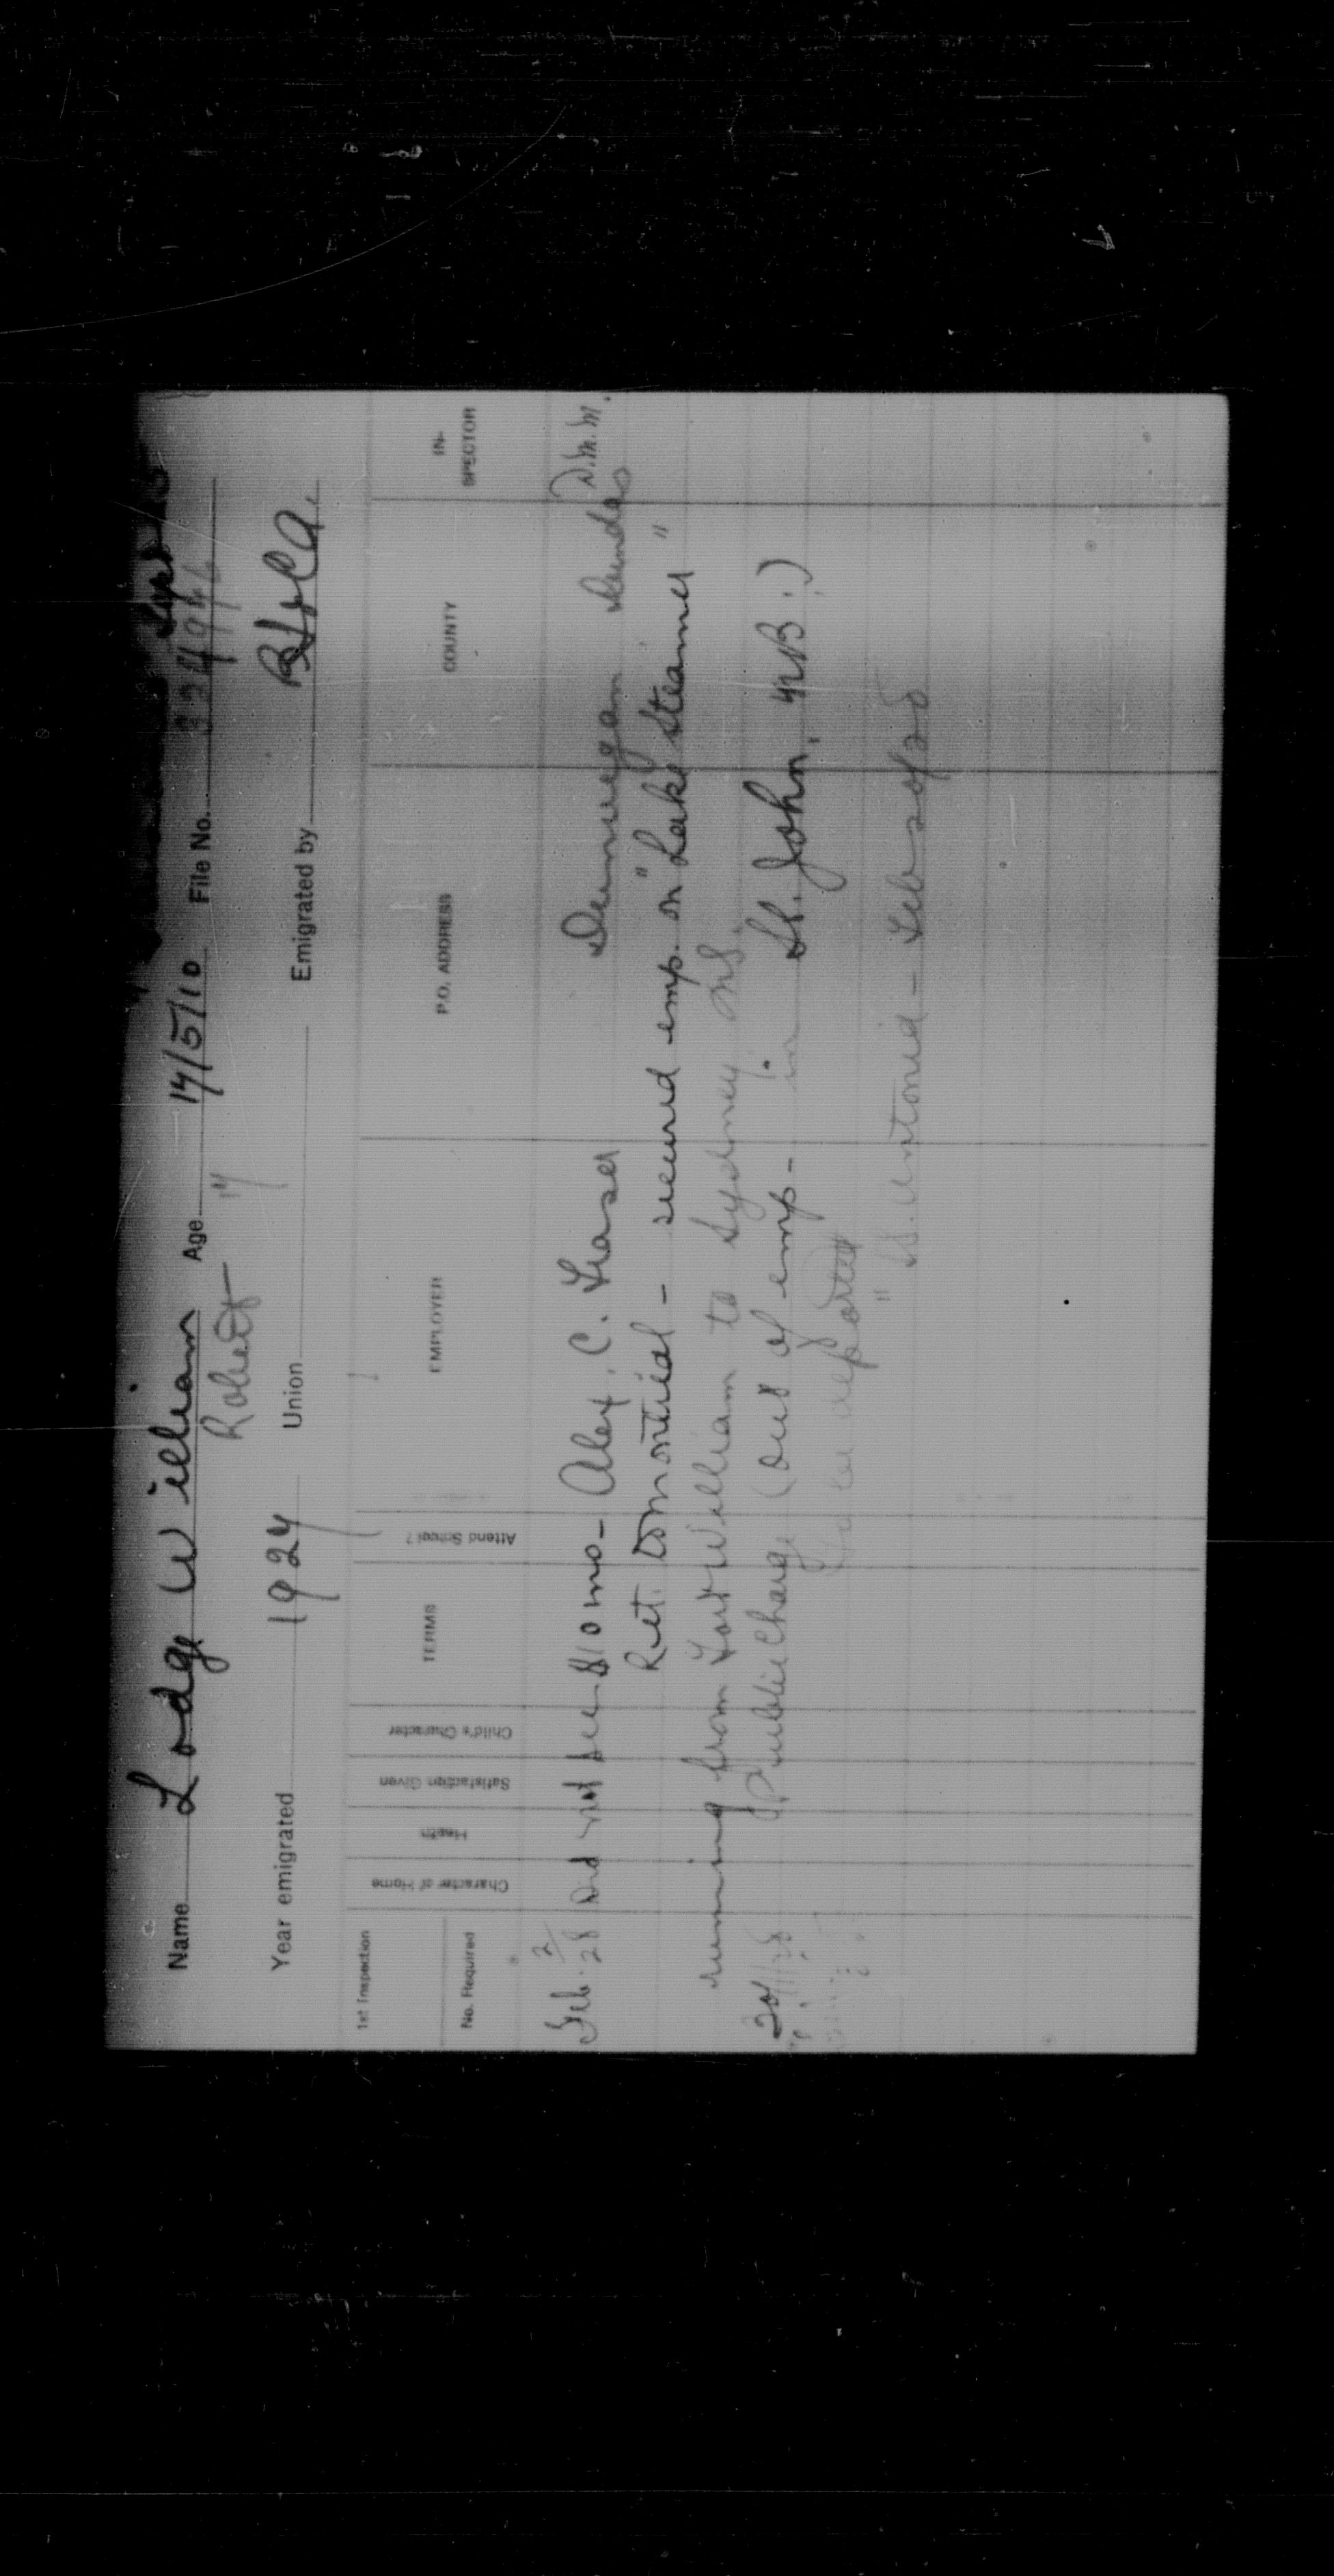 Name Lodge William Age 14/5/10 File No.
Robert 14
Year emigrated 1924 Union Emigrated by
1st Inspection
No. Required
Character of Home
Health
Satisfaction Given
Child's Character
TERMS
Attend School?
EMPLOYER
P.O. ADDRESS
COUNTY
IN-SPECTOR
Feb. 2/28 Did not see $10 mo- Alex. C. Fraser Dunvegan Dundas D.M.M.
Ret. to Montreal - secured emp. on "Lake Steamer"
running from Fort William to Sydney N.S.
Public Charge (out of emp- in St. John, N.B.)
to be deported
"SS. Antonia - Feb 20/28